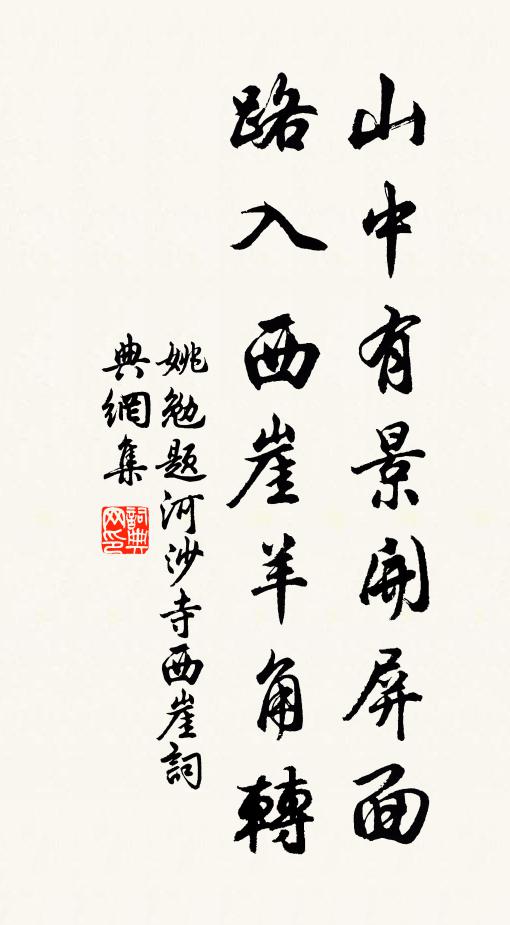 山中有景開屏面
路入西崖羊角轉
姚勉題河沙寺西崖詞
典網集
詞典網印